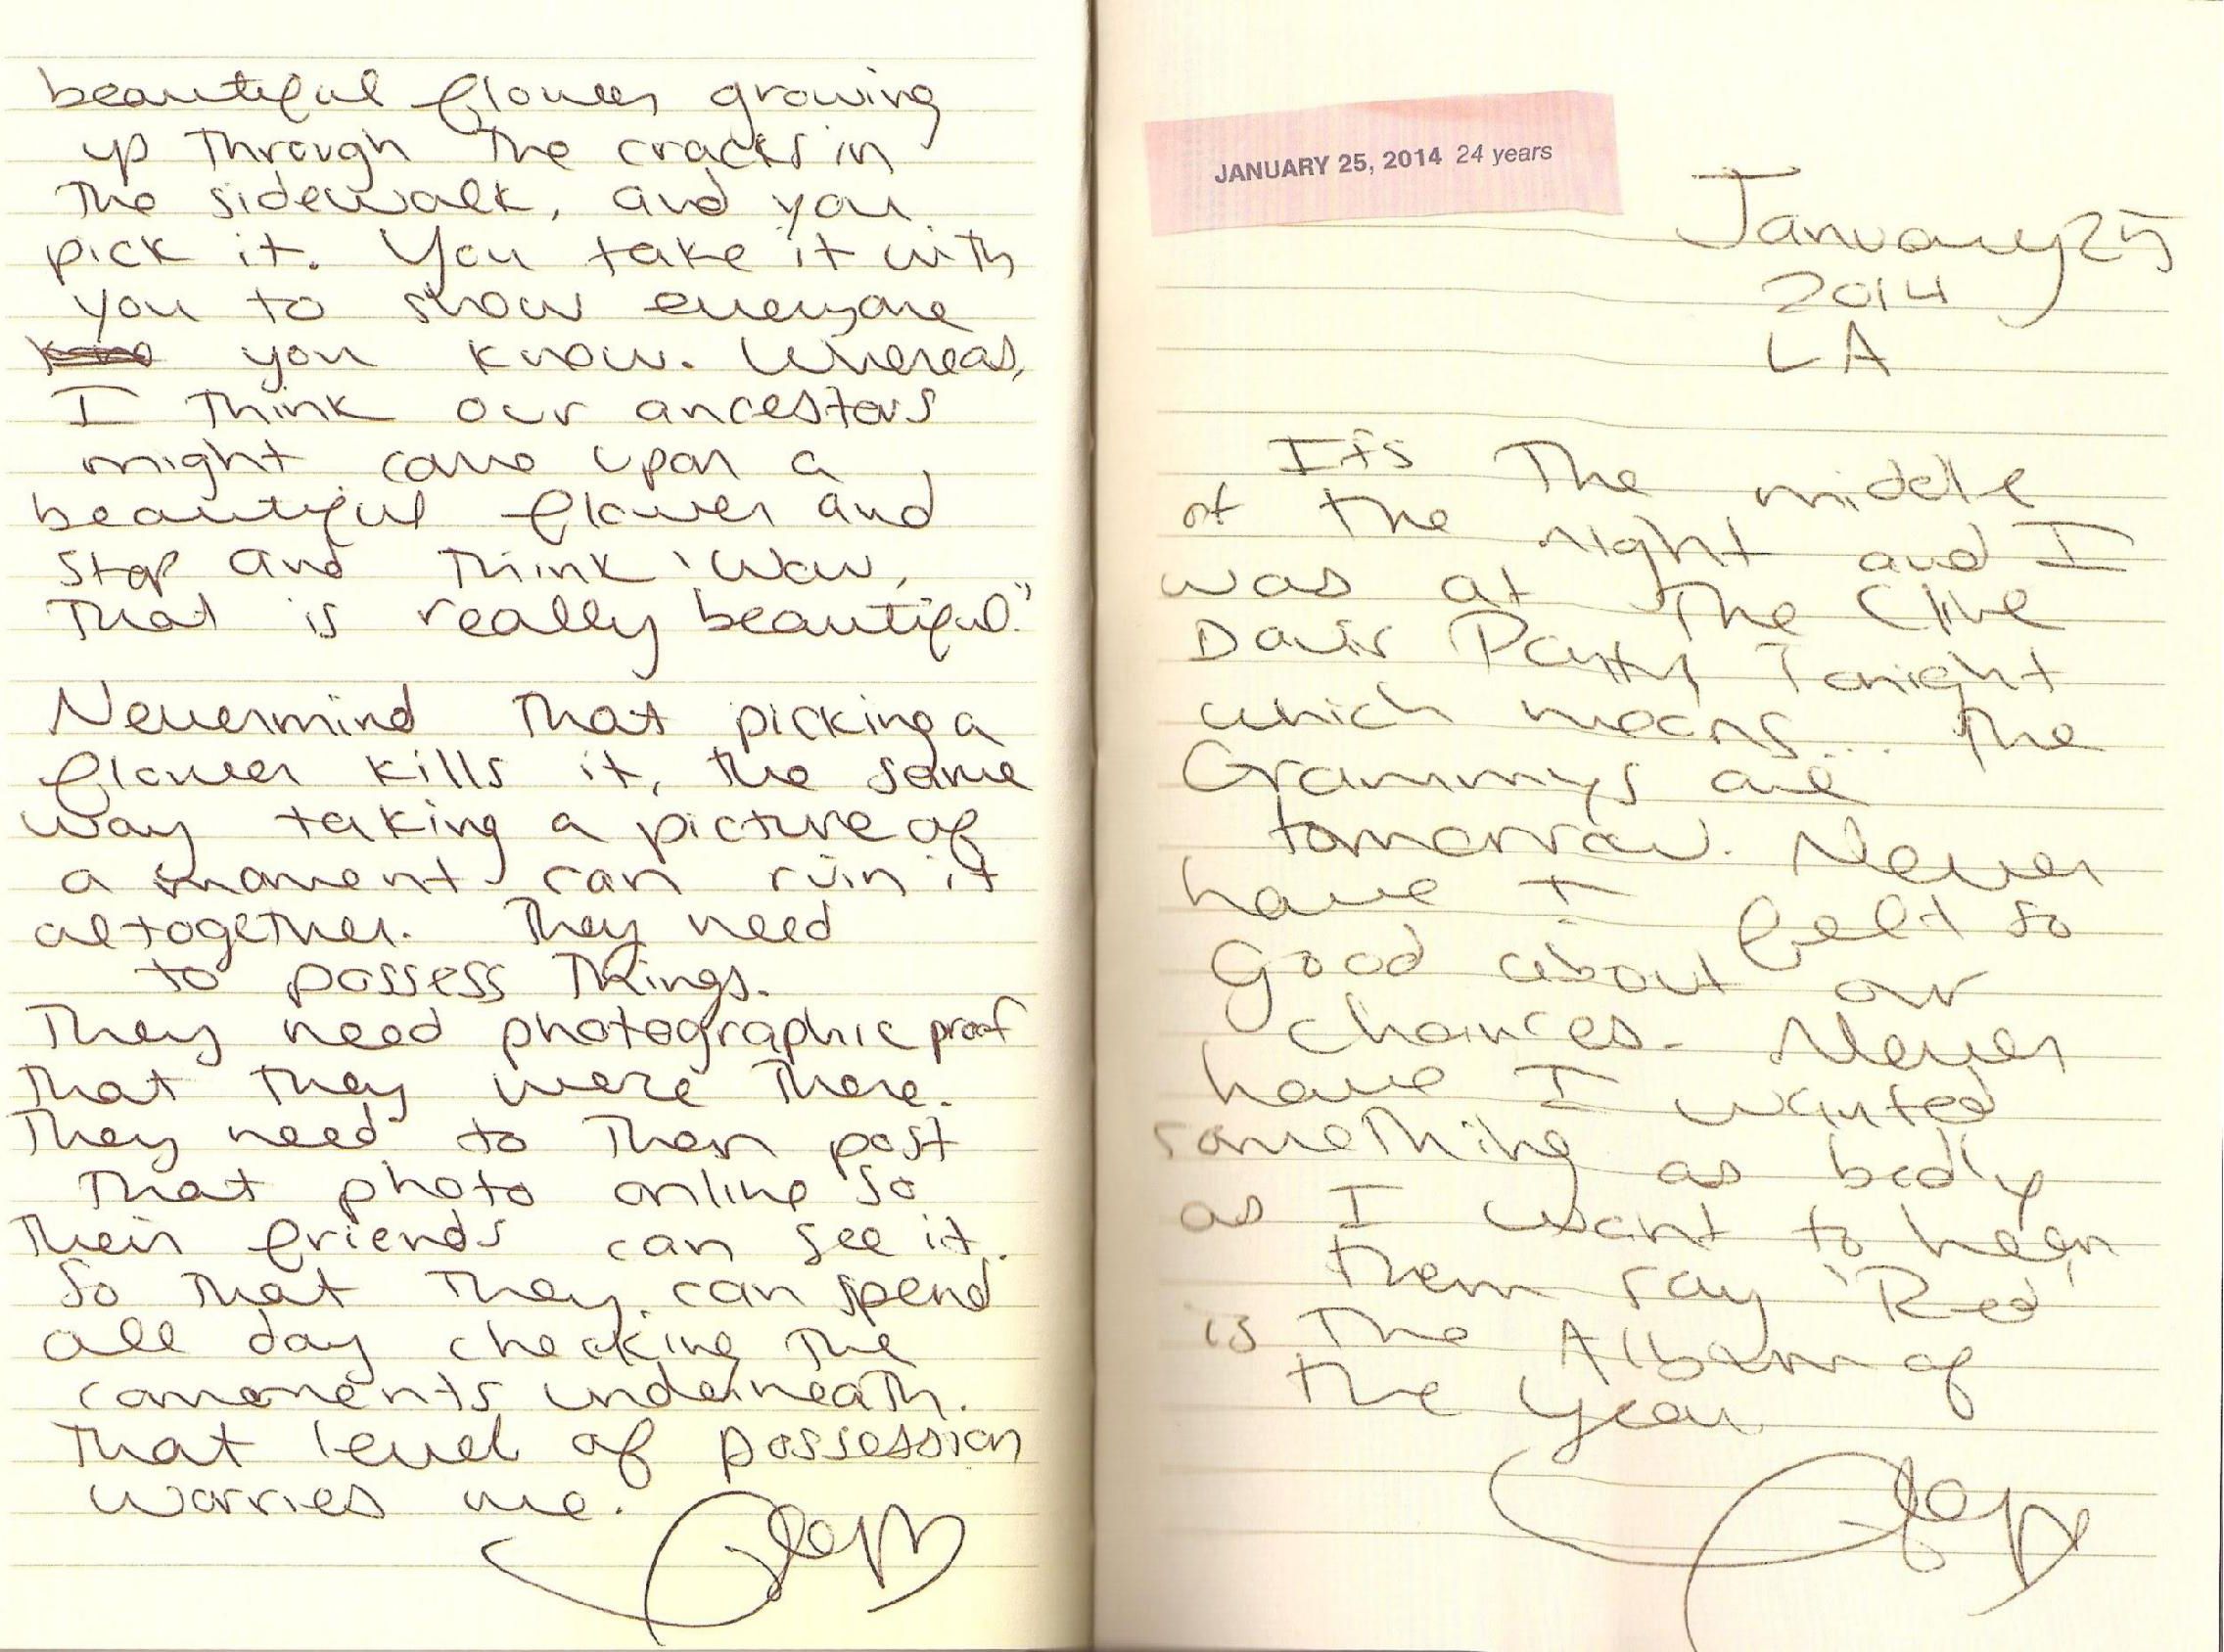 beautiful flower growing
up through the cracks in
the sidewalk, and you
pick it. You take it with
you to show everyone
you know. Whereas,
I think our ancestors
might come upon a
beautiful flower and
stop and think 'Wow,
that is really beautiful."
Nevermind that picking a
flower kills it, the same
way taking a picture of
a moment can ruin it
altogether. They need
to possess things.
They need photographic proof
that they were there.
They need to then post
that photo online so
their friends can see it.
So that they can spend
all day checking the
comments underneath.
That level of possession
worries me.
JANUARY 25, 2014 24 years
January 25
2014
LA
It's the middle
of the night and I
was at the Clive
Davis Party Tonight
which means... the
Grammys are
tomorrow. Never
have I felt so
good about our
chances. Never
have I wanted
something as badly
as I want to hear
them say 'Red'
is the Album of
the year